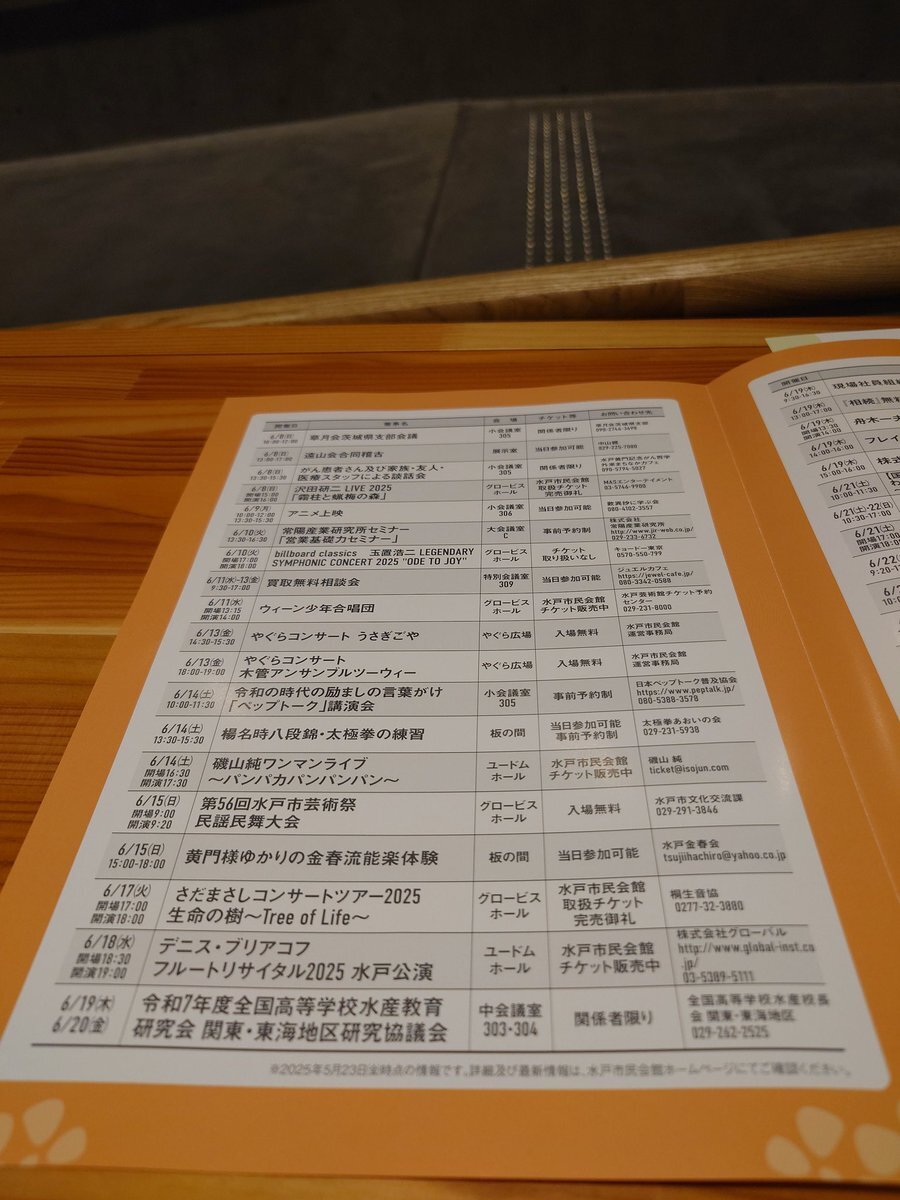 開催日 催事名 会場 チケット等 お問い合わせ先
6/8(日)
10:00-12:00
皐月会茨城県支部会議
小会議室
305
関係者限り
皐月会茨城県支部
6/8(日)
13:00-17:00
遠山会合同稽古
展示室
当日参加可能
029-225-7080
6/8(日)
13:30-15:30
がん患者さん及び家族・友人・
医療スタッフによる談話会
小会議室
305
関係者限り
水戸黄門記念がん哲学
外来まちなかカフェ
090-5794-5027
6/8(日)
開場15:00
開演16:00
沢田研二 LIVE 2025
「霜柱と蝋梅の森」
グロービス
ホール
水戸市民会館
取扱チケット
完売御礼
MASエンターテイメント
03-5746-9900
6/9(月)
10:00-12:00
13:30-15:30
アニメ上映
小会議室
306
当日参加可能
数異抄に学ぶ会
080-4102-3557
6/10(火)
13:30-16:30
常陽産業研究所セミナー
「営業基礎力セミナー」
大会議室
C
事前予約制
株式会社
常陽産業研究所
http://www.jir-web.co.jp/
029-233-6732
6/10(火)
開場17:00
開演18:00
billboard classics 玉置浩二 LEGENDARY
SYMPHONIC CONCERT 2025 "ODE TO JOY"
グロービス
ホール
チケット
取り扱いなし
キョードー東京
0570-550-799
6/11(水)-13(金)
9:30-17:00
買取無料相談会
特別会議室
309
当日参加可能
ジュエルカフェ
https://jewel-cafe.jp/
080-3342-0588
6/11(水)
開場13:15
開演14:00
ウィーン少年合唱団
グロービス
ホール
水戸市民会館
チケット販売中
水戸芸術館チケット予約
センター
029-231-8000
6/13(金)
14:30-15:30
やぐらコンサート うさぎごや
やぐら広場
入場無料
水戸市民会館
運営事務局
6/13(金)
18:00-19:00
やぐらコンサート
木管アンサンブルツーウィー
やぐら広場
入場無料
水戸市民会館
運営事務局
6/14(土)
10:00-11:30
令和の時代の励ましの言葉がけ
「ペップトーク」講演会
小会議室
305
事前予約制
日本ペップトーク普及協会
https://www.peptalk.jp/
080-5388-3578
6/14(土)
13:30-15:30
楊名時八段錦・太極拳の練習
板の間
当日参加可能
事前予約制
太極拳あおいの会
029-231-5938
6/14(土)
開場16:30
開演17:30
磯山純ワンマンライブ
～パンパカパンパンパン～
ユードム
ホール
水戸市民会館
チケット販売中
磯山 純
ticket@isojun.com
6/15(日)
開場9:00
開演9:20
第56回水戸市芸術祭
民謡民舞大会
グロービス
ホール
入場無料
水戸市文化交流課
029-291-3846
6/15(日)
15:00-18:00
黄門様ゆかりの金春流能楽体験
板の間
当日参加可能
水戸金春会
tsujiihachiro@yahoo.co.jp
6/17(火)
開場17:00
開演18:00
さだまさしコンサートツアー2025
生命の樹～Tree of Life～
グロービス
ホール
水戸市民会館
取扱チケット
完売御礼
桐生音協
0277-32-3880
6/18(水)
開場18:30
開演19:00
デニス・ブリアコフ
フルートリサイタル2025 水戸公演
ユードム
ホール
水戸市民会館
チケット販売中
株式会社グローバル
http://www.global-inst.co
.jp/
03-5389-5111
6/19(木)
6/20(金)
令和7年度全国高等学校水産教育
研究会 関東・東海地区研究協議会
中会議室
303・304
関係者限り
全国高等学校水産校長
会 関東・東海地区
029-262-2525
※2025年5月23日(金)時点の情報です。詳細及び最新情報は、水戸市民会館ホームページにてご確認ください。
開催日
6/19(木)
9:30-16:30
現場社員組
6/19(木)
13:00-17:00
『相続』無
6/19(木)
開場13:30
開演14:00
舟木一夫
6/19(木)
14:00-16:00
フレイ
6/19(木)
15:00-16:00
株式
6/21(土)
10:00-11:30
6/21(土)-22(日)
10:30-17:00
6/21(土)
開場17:00
6/22(
9:20-1